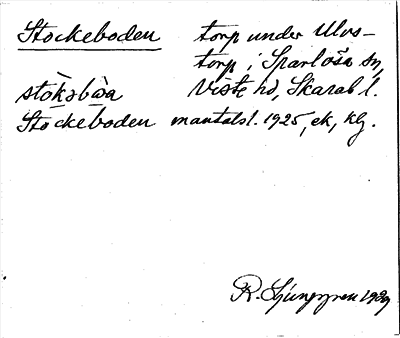 Stockeboden torp under Ulvs-
torp i Sparlösa sn,
stòkəbòa Viste hd, Skarab l.
Stockeboden mantalsl. 1925, ek, klg.
R. Ljunggren 1929